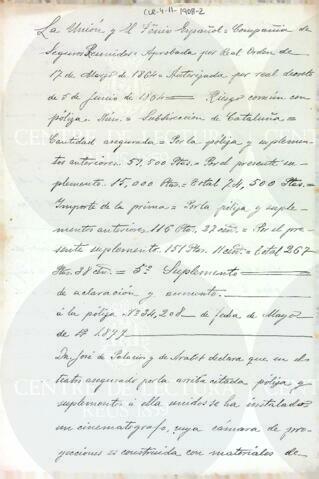 CR-4-11-1908-2
La Unión y El Fénix Español = Compañía de
Seguros Reunidos = Aprobada por Real Orden de
17 de Marzo de 1864 = Autorizada por real decreto
de 5 de Junio de 1864 = Riesgo común con
póliza = Núm. = Subdirección de Cataluña =
Cantidad asegurada = Por la póliza y suplemen-
tos anteriores. 59,500 Ptas. = Por el presente su-
plemento. 15,000 Ptas. = Total 74,500 Ptas. =
Importe de la prima = Por la póliza y suple-
mentos anteriores 116 Ptas. 27 cén. = Por el pre-
sente suplemento. 151 Ptas. 11 cén. = Total 267
Ptas. 38 cén. = 5º Suplemento
de aclaración y aumento.
á la póliza Nº 34,208 = de fecha de Mayo
de 1,899
Dn. José de Palacio y de declara que en el
teatro asegurado por la arriba citada póliza y
suplementos á ella unidos se ha instalado
un cinematógrafo, cuya cámara de pro-
yecciones es construida con materiales de
CENTRE DE LECTURA
CENTRE DE LECTURA
REUS 1859